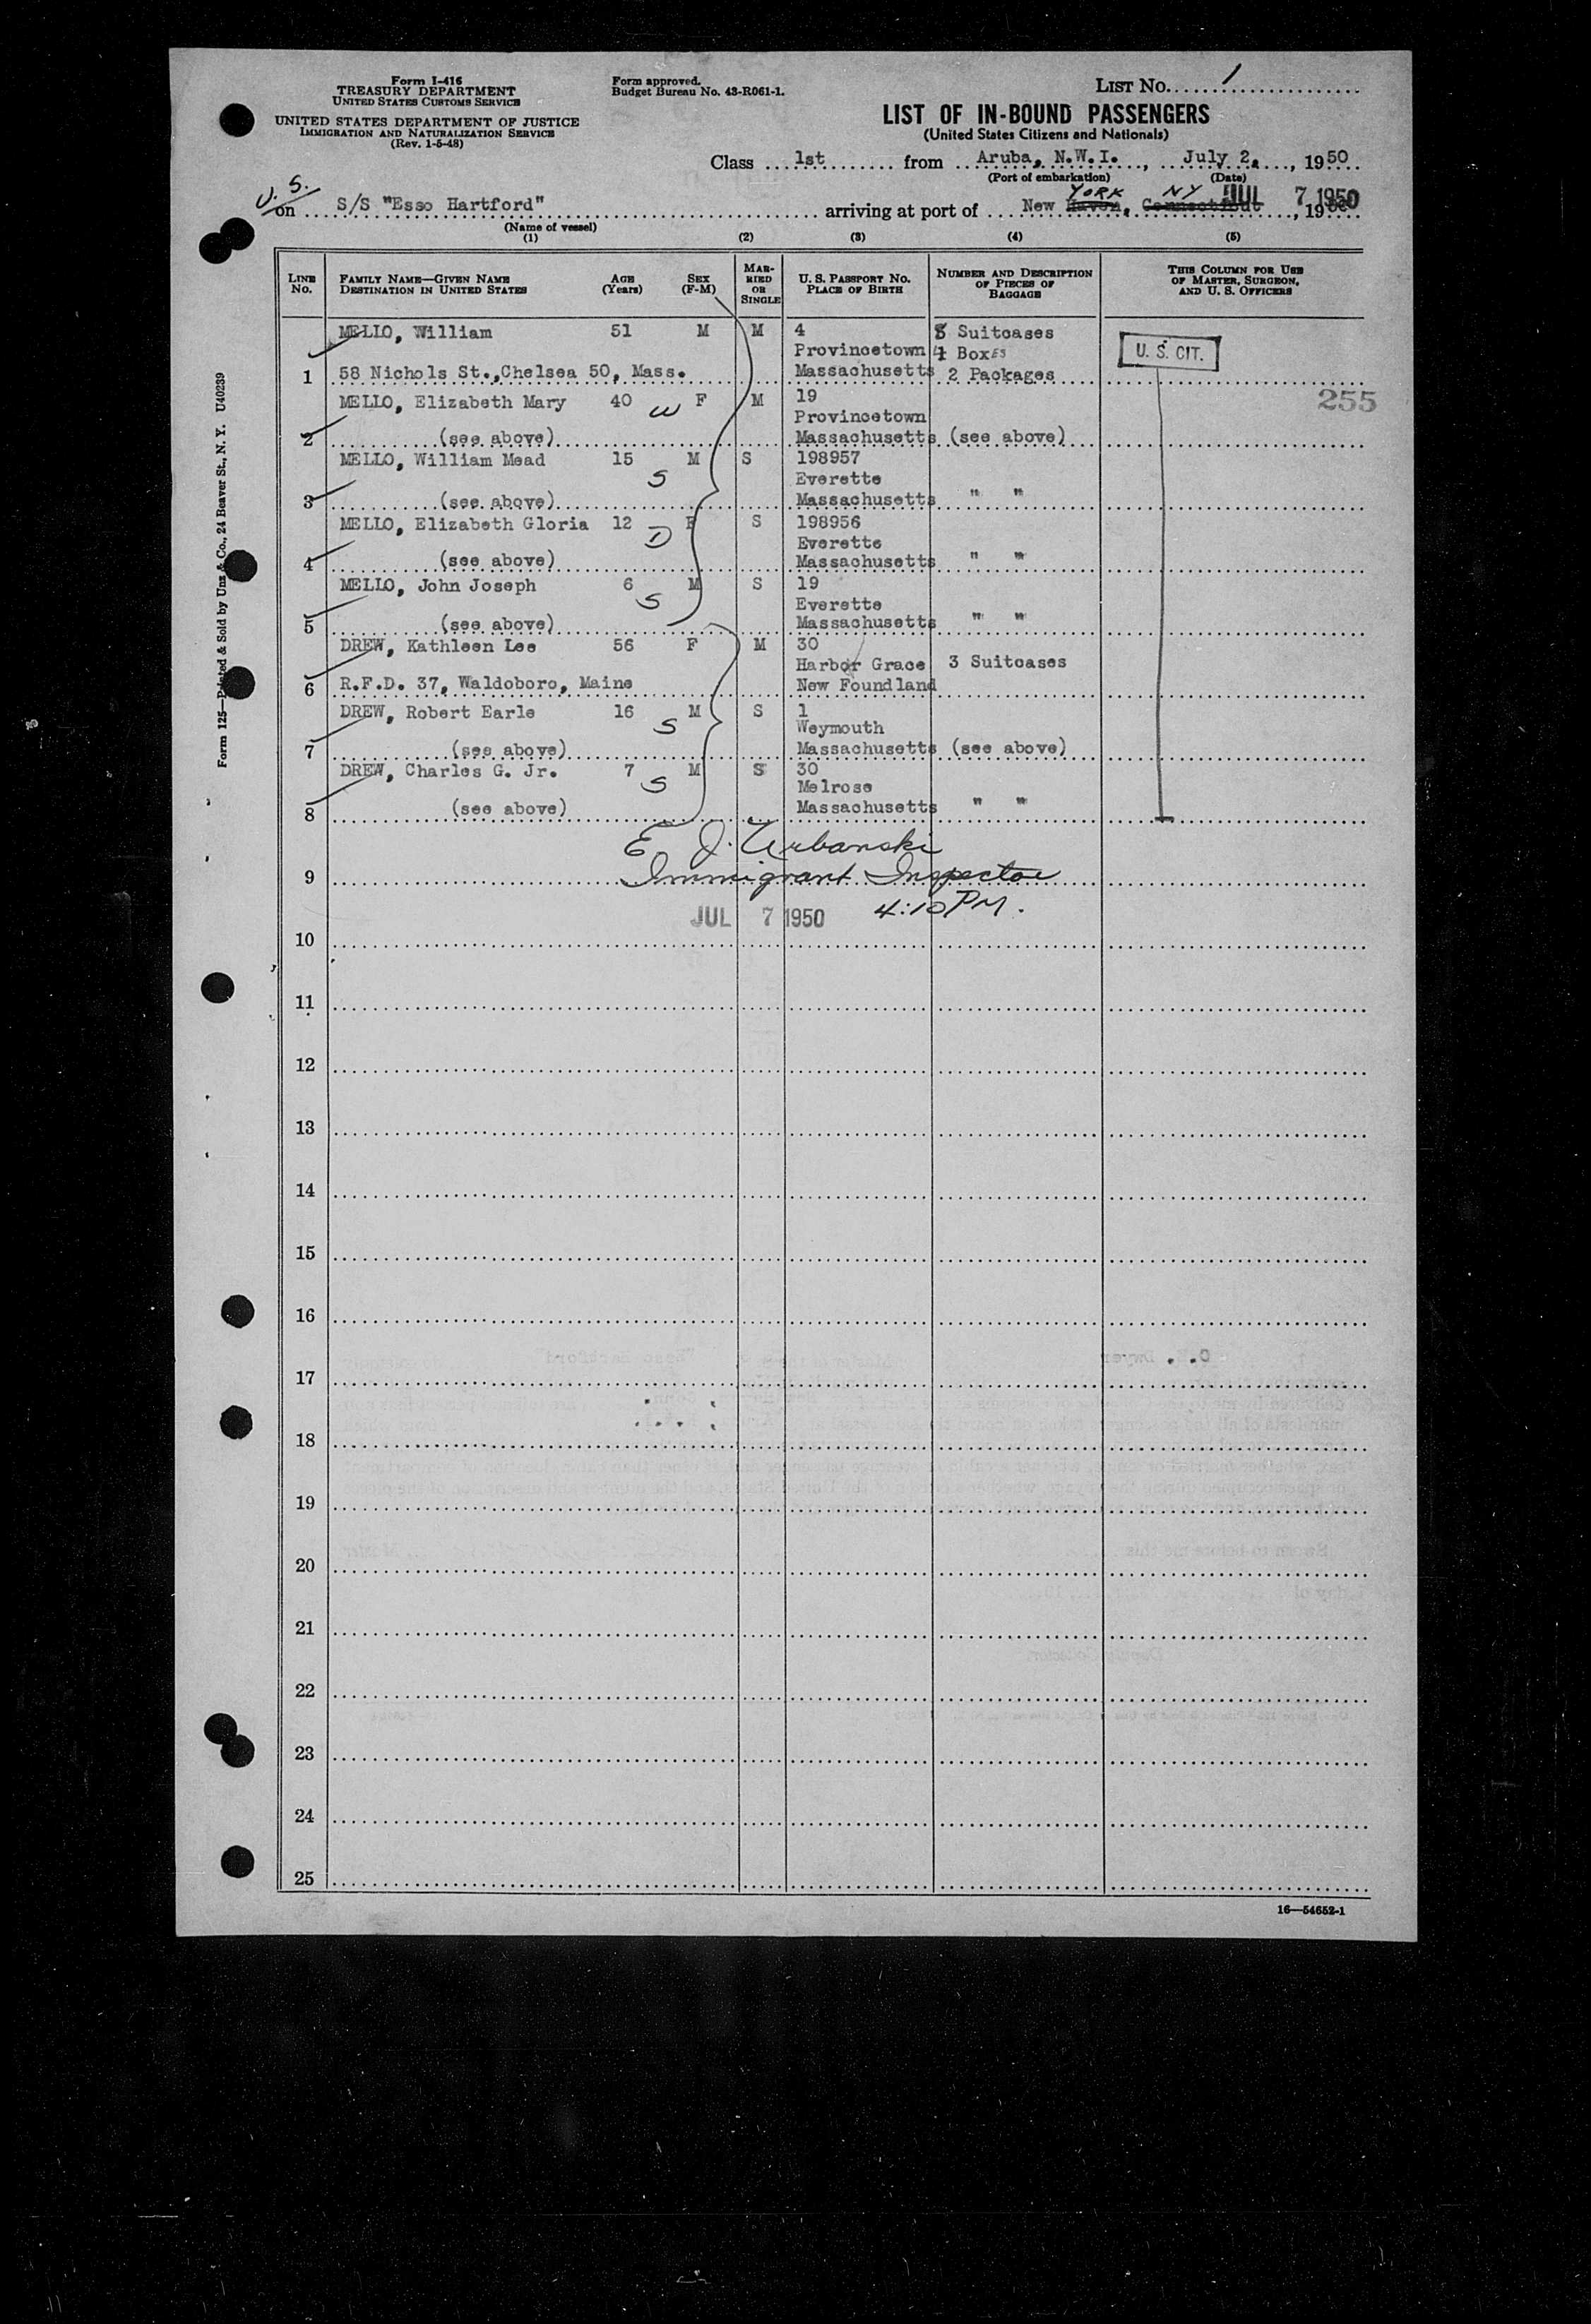 Form I-416
TREASURY DEPARTMENT
UNITED STATES CUSTOMS SERVICE
UNITED STATES DEPARTMENT OF JUSTICE
IMMIGRATION AND NATURALIZATION SERVICE
(Rev. 1-5-48)
Form approved.
Budget Bureau No. 43-R061-1.
LIST No. 1
LIST OF IN-BOUND PASSENGERS
(United States Citizens and Nationals)
Class 1st from Aruba, N.W.I., July 2, 1950
(Port of embarkation) (Date)
U.S. YORK NY JUL 7 1950
on S/S "Esso Hartford" arriving at port of New Haven, Connecticut, 19
(Name of vessel)
(1) (2) (3) (4) (5)
LINE No. FAMILY NAME—GIVEN NAME DESTINATION IN UNITED STATES AGE (Years) SEX (F-M) MARRIED OR SINGLE U. S. PASSPORT No. PLACE OF BIRTH NUMBER AND DESCRIPTION OF PIECES OF BAGGAGE THIS COLUMN FOR USE OF MASTER, SURGEON, AND U. S. OFFICERS
MELLO, William 51 M M 4 Suitcases
Provincetown 4 Boxes U. S. CIT.
1 58 Nichols St., Chelsea 50, Mass. Massachusetts 2 Packages
MELLO, Elizabeth Mary 40 W F M 19 255
Provincetown
2 (see above) Massachusetts (see above)
MELLO, William Mead 15 S M S 198957
Everette
3 (see above) Massachusetts " "
MELLO, Elizabeth Gloria 12 D F S 198956
Everette
4 (see above) Massachusetts " "
MELLO, John Joseph 6 S M S 19
Everette
5 (see above) Massachusetts " "
DREW, Kathleen Lee 56 F M 30
Harbor Grace 3 Suitcases
6 R.F.D. 37, Waldoboro, Maine New Foundland
DREW, Robert Earle 16 S M S 1
Weymouth
7 (see above) Massachusetts (see above)
DREW, Charles G. Jr. 7 S M S 30
Melrose
8 (see above) Massachusetts " "
E J. Urbanski
9 Immigrant Inspector
JUL 7 1950 4:10 PM.
10
11
12
13
14
15
16
17
18
19
20
21
22
23
24
25
16—54652-1
Form 125—Printed & Sold by Unz & Co., 24 Beaver St., N. Y. U40239